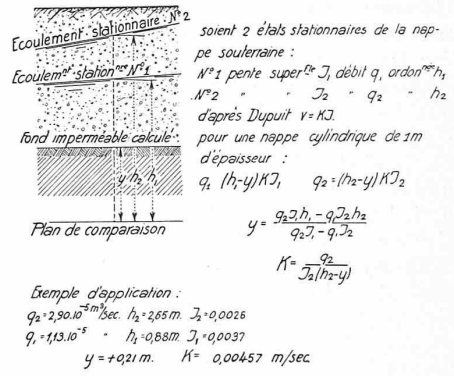 Ecoulement stationnaire N°2
Ecoulemnt stationnre N°1
Fond imperméable calculé
y h2 h1
Plan de comparaison
soient 2 états stationnaires de la nap-
pe souterraine :
N°1 pente superfle J1 débit q1 ordonnée h1
N°2 " " J2 " q2 " h2
d'après Dupuit v=KJ.
pour une nappe cylindrique de 1m
d'épaisseur :
q1 (h1-y)KJ1 q2=(h2-y)KJ2
y = (q2J1h1 - q1J2h2) / (q2J1 - q1J2)
K = q2 / (J2(h2-y))
Exemple d'application :
q2=2,90.10^-5 m3/sec. h2=2,65m. J2=0,0026
q1=1,13.10^-5 " h1=0,88m. J1=0,0037
y=+0,21m. K= 0,00457 m/sec.